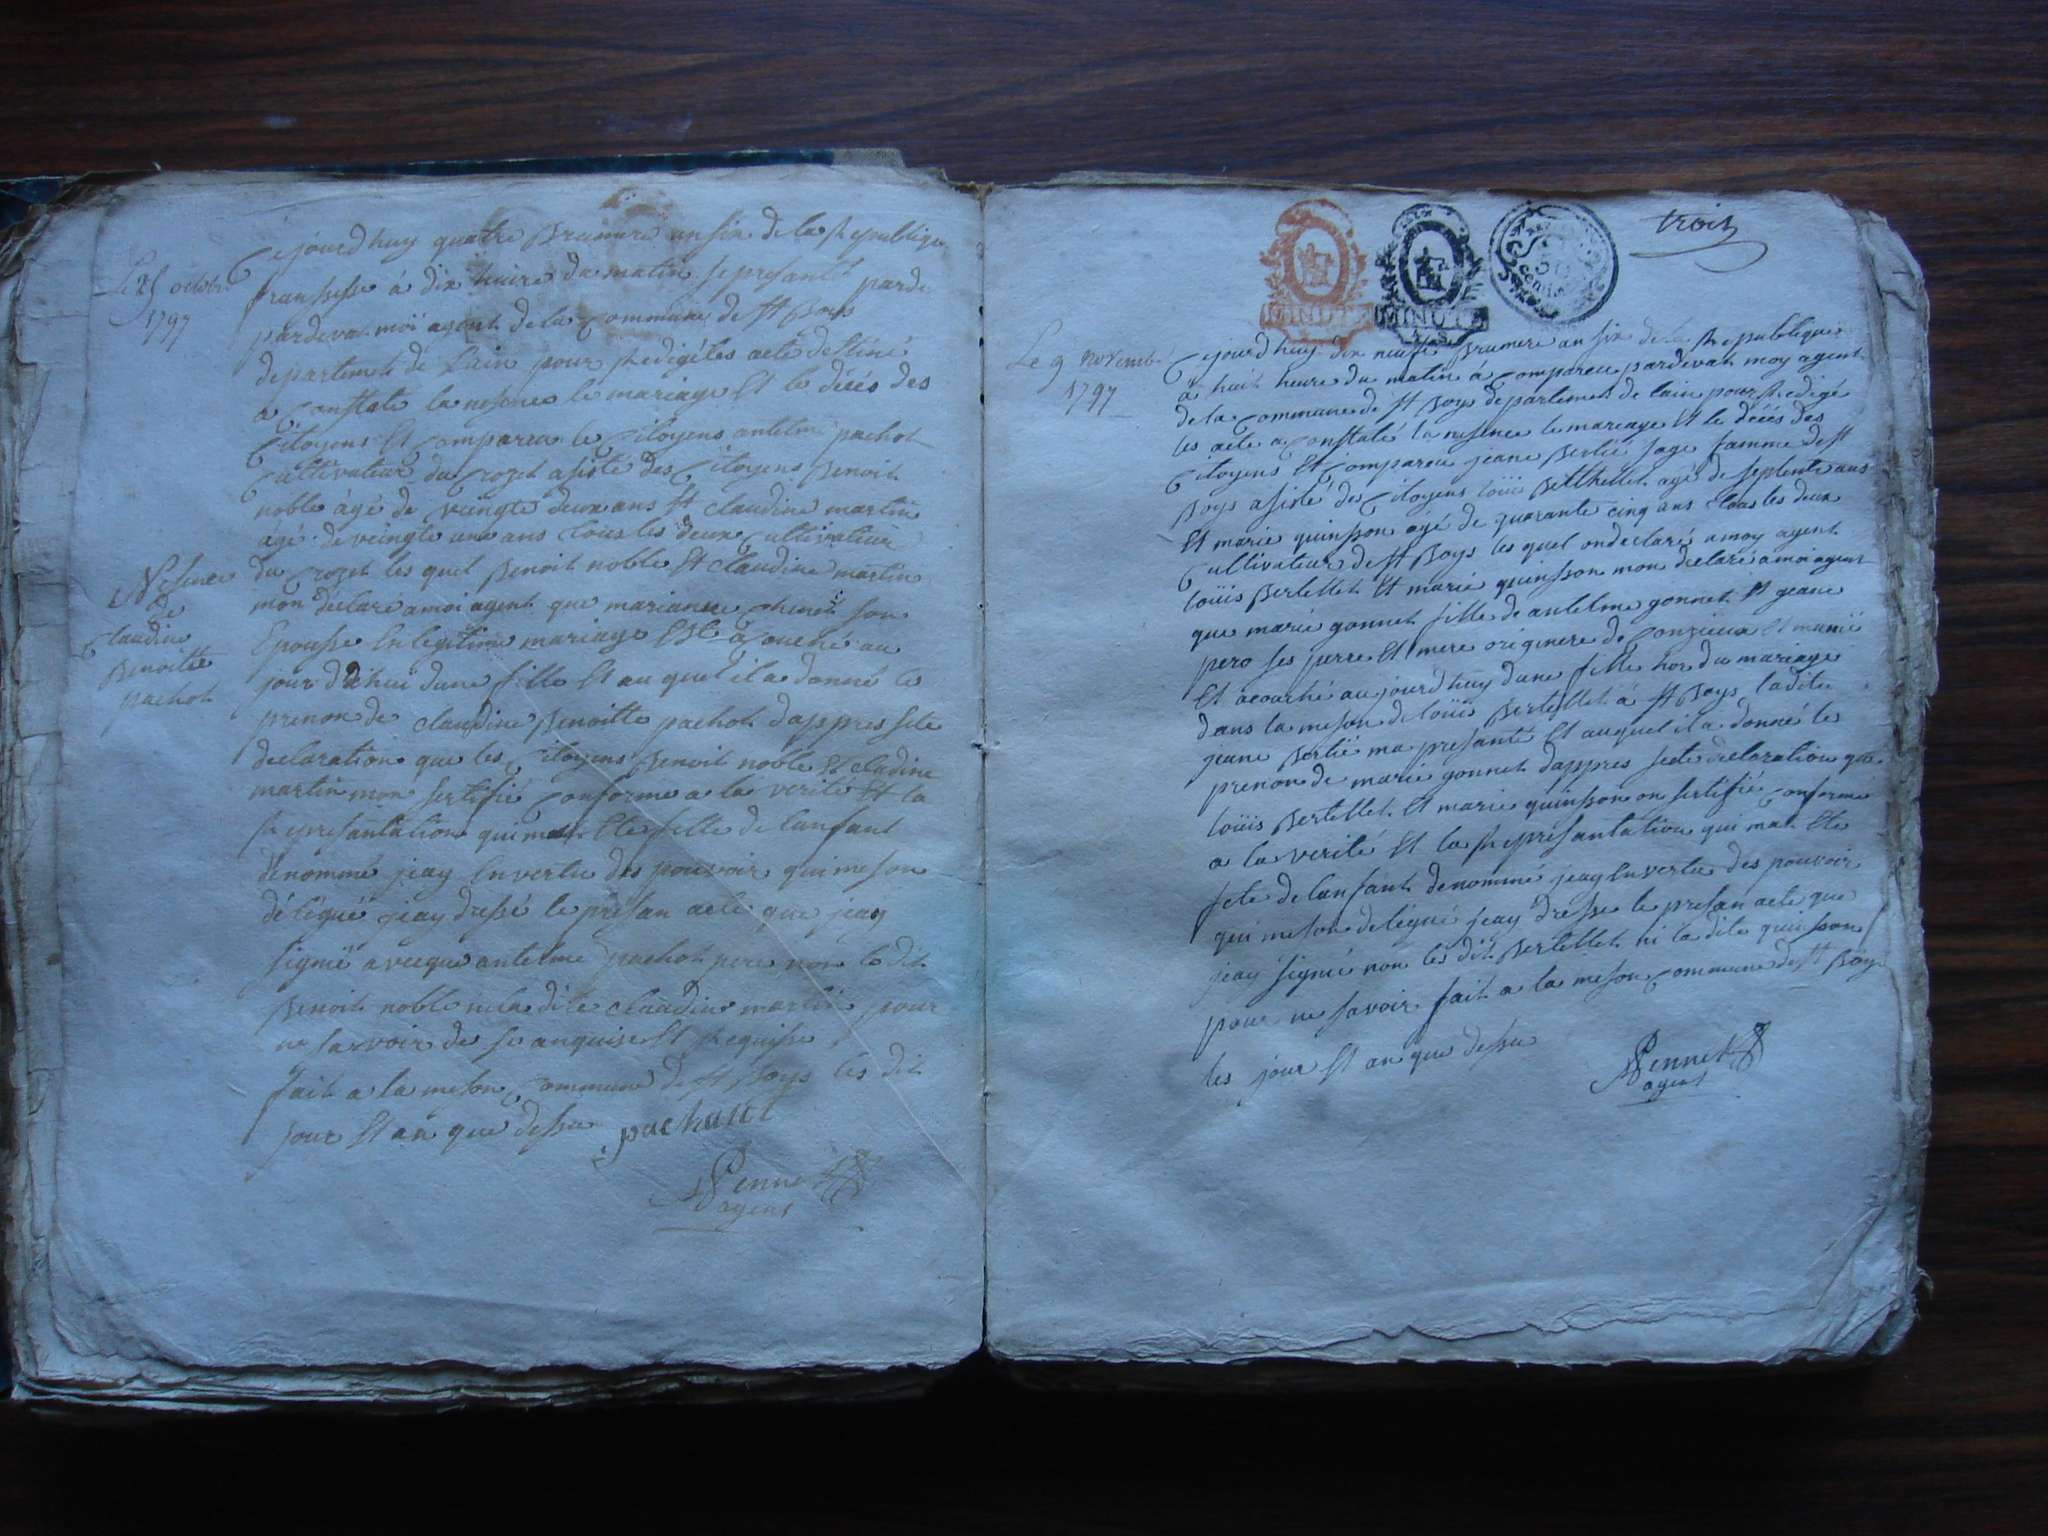 Le 25 octobre
1797
Cejourd'huy quatre Brumere an six de la Republique
franssesse à dix heure du matin se presant parde
pardevan moi agent de la Commune de St Boys
departement de Lain pour Redigé les acte destiné
a Constate la nesence le mariage Et le décés des
Citoyens Et Comparcu le Citoyens antelme pachot
Cultivateur du Crozet asisté des Citoyens Benoit
noble âgé de veingte deux ans Et Claudine martin
âgé de veingte une ans tous les deux Cultivateur
du Crozet les quel Benoit noble Et Claudine martin
mon déclaré a moi agent que marianne son
Epousse En legitime mariage Est acouché au
jour d'ahui dune fille Et au quel il a donné le
prenon de Claudine Benoitte pachot dappres sete
declaration que les Citoyens Benoit noble Et Cladine
martin mon sertifié Conforme a la verité Et la
Representation qui mat Ete fette de lanfant
dénommé jeay En vertu des pouvoir qui me son
délégué jeay dressé le presan acte que jeay
signié avecque antelme pachot pere non le dit
Benoit noble ni la dite Claudine martin pour
ne savoir de se anquise Et Requisse
fait a la meson Commune de St Boys les dit
jour Et an que dessu pachaut
Pennet
agent
Nesence
de
Claudine
Benoitte
pachot
trois
MINUTE
MINUTE
50
Centimes
Le 9 Novembre
1797
Cejourd'huy dix neufe Brumere an six de la Republique
à huit heure du matin a Compareu pardevat moy agent
de la Commune de St Boys departement de lain pour Redigé
les acte a Constaté la nesence le mariage Et le décés des
Citoyens Et Compareu jeane Bertié sage famme de St
Boys asisté des Citoyens loüis Berthellet agé de septente ans
Et marie quinsson âgé de quarante cinq ans tous les deux
Cultivateur de St Boys les quel on declaré a moy agent
loüis Bertellet Et marie quinsson mon declaré a moi agent
que marie gonnet fille de antelme gonnet Et jeane
pero ses perre Et mere originere de Conzieux Et
Et acouché au jourd'huy dune fille hor du mariage
dans la meson de loüis Bertellet à St Boys ladite
jeane Bertié ma presanté Et auquel il a donné le
prenon de marie gonnet dappres sete declaration que
loüis Bertellet Et marie quinsson on sertifié Conforme
a la verité Et la Representation qui mat Ete
fete de lanfant denommé jeay En vertu des pouvoir
qui me son delégué jeay dresse le presan acte que
jeay signié non les dit Bertellet ni la dite quinsson
pour ne savoir fait a la meson Commune de St Boys
les jour Et an que dessu
Pennet
agent